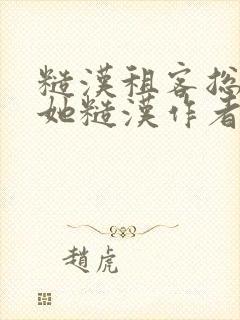 糙漢租客總
她糙漢作者
趙虎